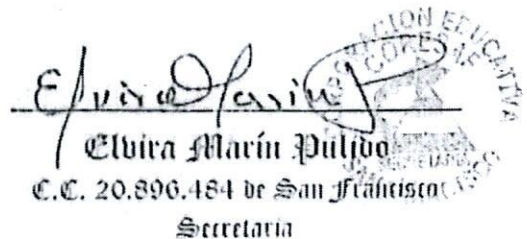 Elvira Marín P
Elvira Marín Pulido
C.C. 20.896.484 de San Francisco
Secretaria